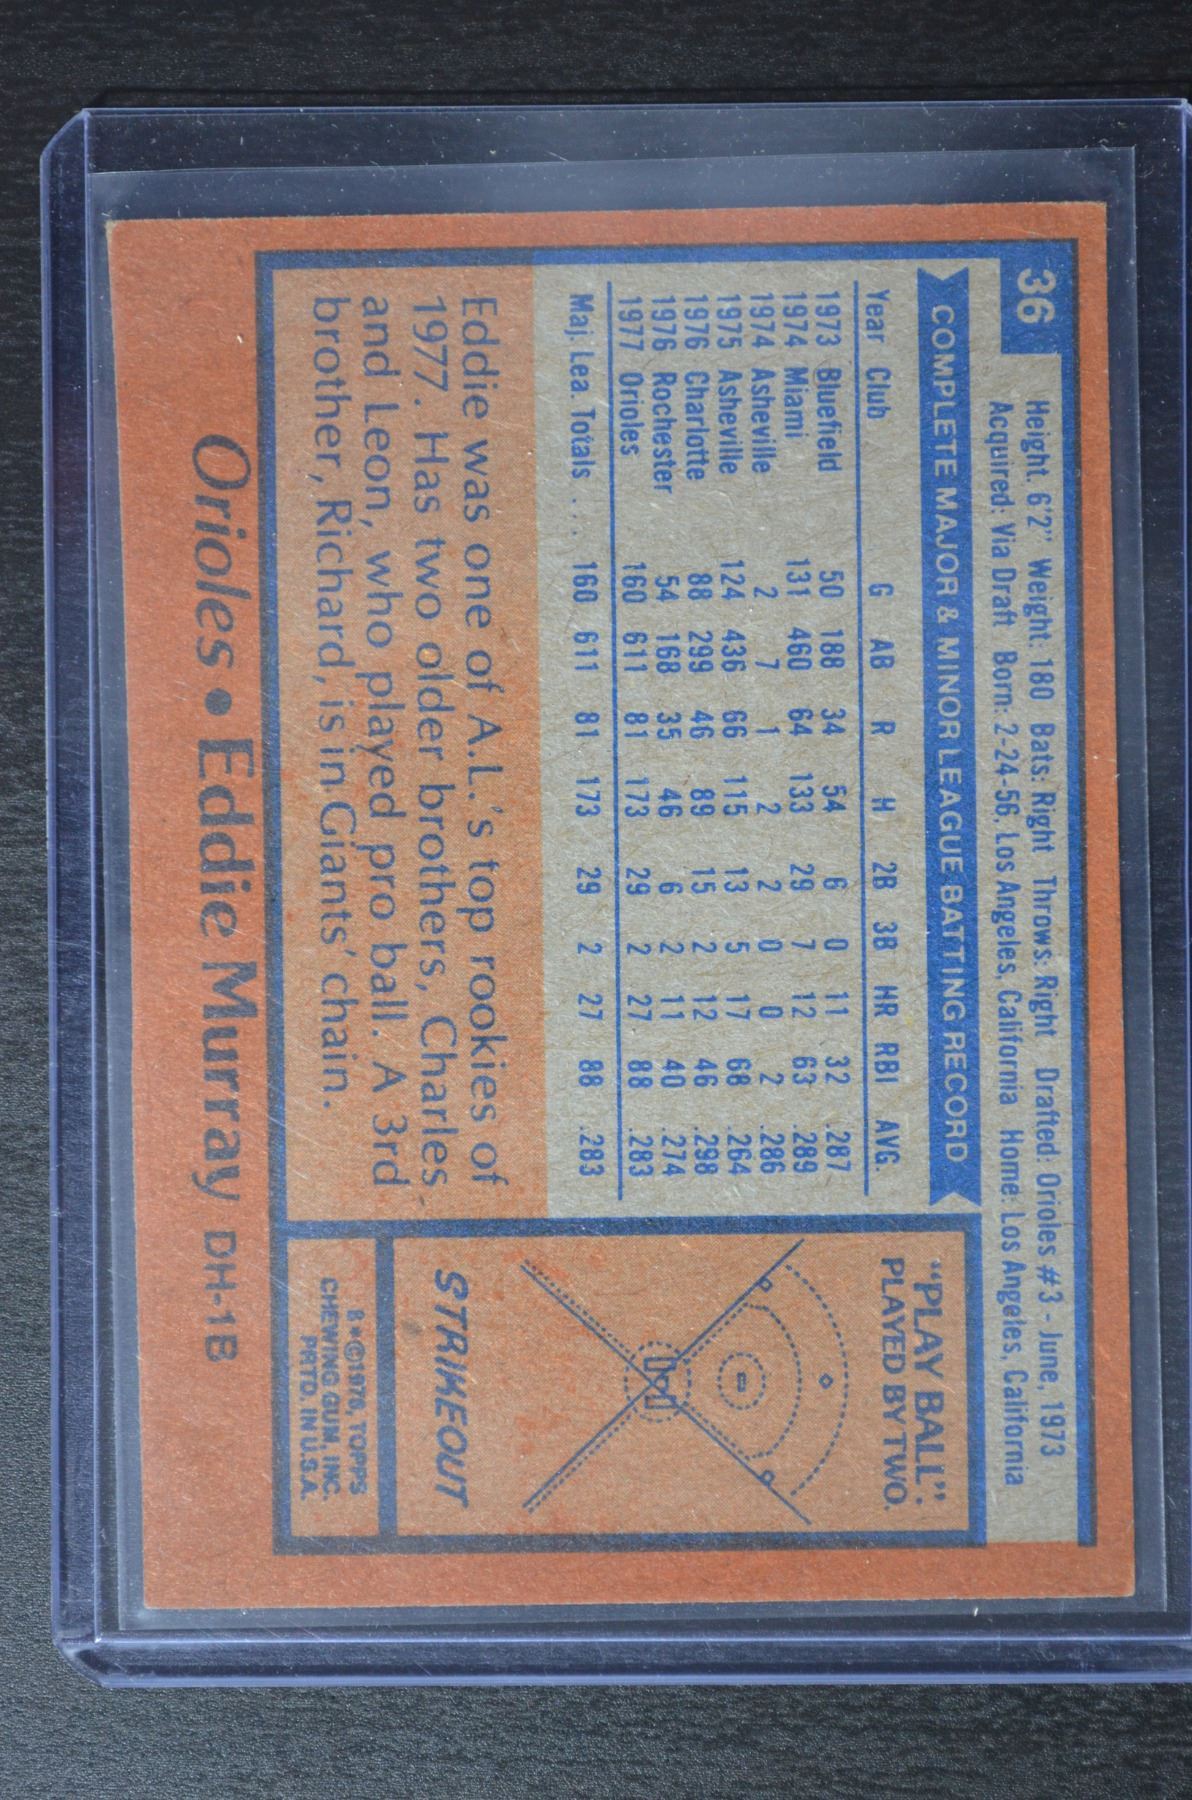 36
Height: 6'2" Weight: 180 Bats: Right Throws: Right Drafted: Orioles #3 - June, 1973
Acquired: Via Draft Born: 2-24-56, Los Angeles, California Home: Los Angeles, California
COMPLETE MAJOR & MINOR LEAGUE BATTING RECORD
Year Club G AB R H 2B 3B HR RBI AVG.
1973 Bluefield 50 188 34 54 6 0 11 32 .287
1974 Miami 131 460 64 133 29 7 12 63 .289
1974 Asheville 2 7 1 2 2 0 0 2 .286
1975 Asheville 124 436 66 115 13 5 17 68 .264
1976 Charlotte 88 299 46 89 15 2 12 46 .298
1976 Rochester 54 168 35 46 6 2 11 40 .274
1977 Orioles 160 611 81 173 29 2 27 88 .283
Maj. Lea. Totals . . . 160 611 81 173 29 2 27 88 .283
Eddie was one of A.L.'s top rookies of
1977. Has two older brothers, Charles
and Leon, who played pro ball. A 3rd
brother, Richard, is in Giants' chain.
"PLAY BALL":
PLAYED BY TWO.
STRIKEOUT
B*©1978, TOPPS
CHEWING GUM, INC.
PRTD. IN U.S.A.
Orioles • Eddie Murray DH-1B